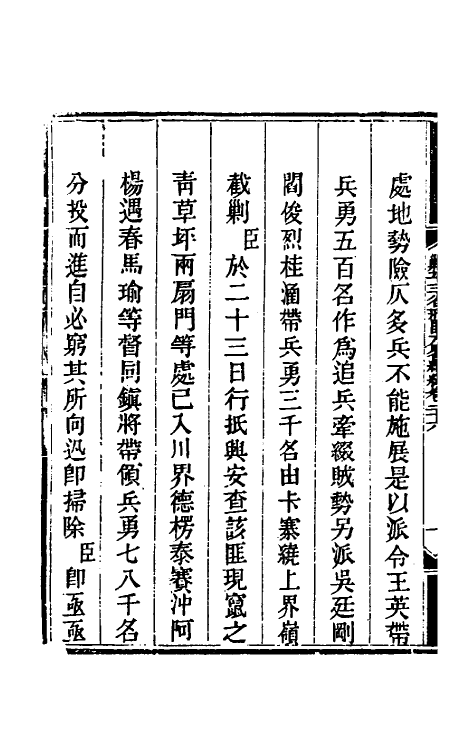 處地勢險仄多兵不能施展是以派令王英帶
兵勇五百名作爲追兵牽綴賊勢另派吳廷剛
閻俊烈桂涵帶兵勇三千名由卡寨繞上界嶺
截剿臣於二十三日行抵興安查該匪現竄之
靑草坪兩扇門等處已入川界德楞泰賽沖阿
楊遇春馬瑜等督同鎮將帶領兵勇七八千名
分投而進自必窮其所向迅卽掃除臣卽亟亟